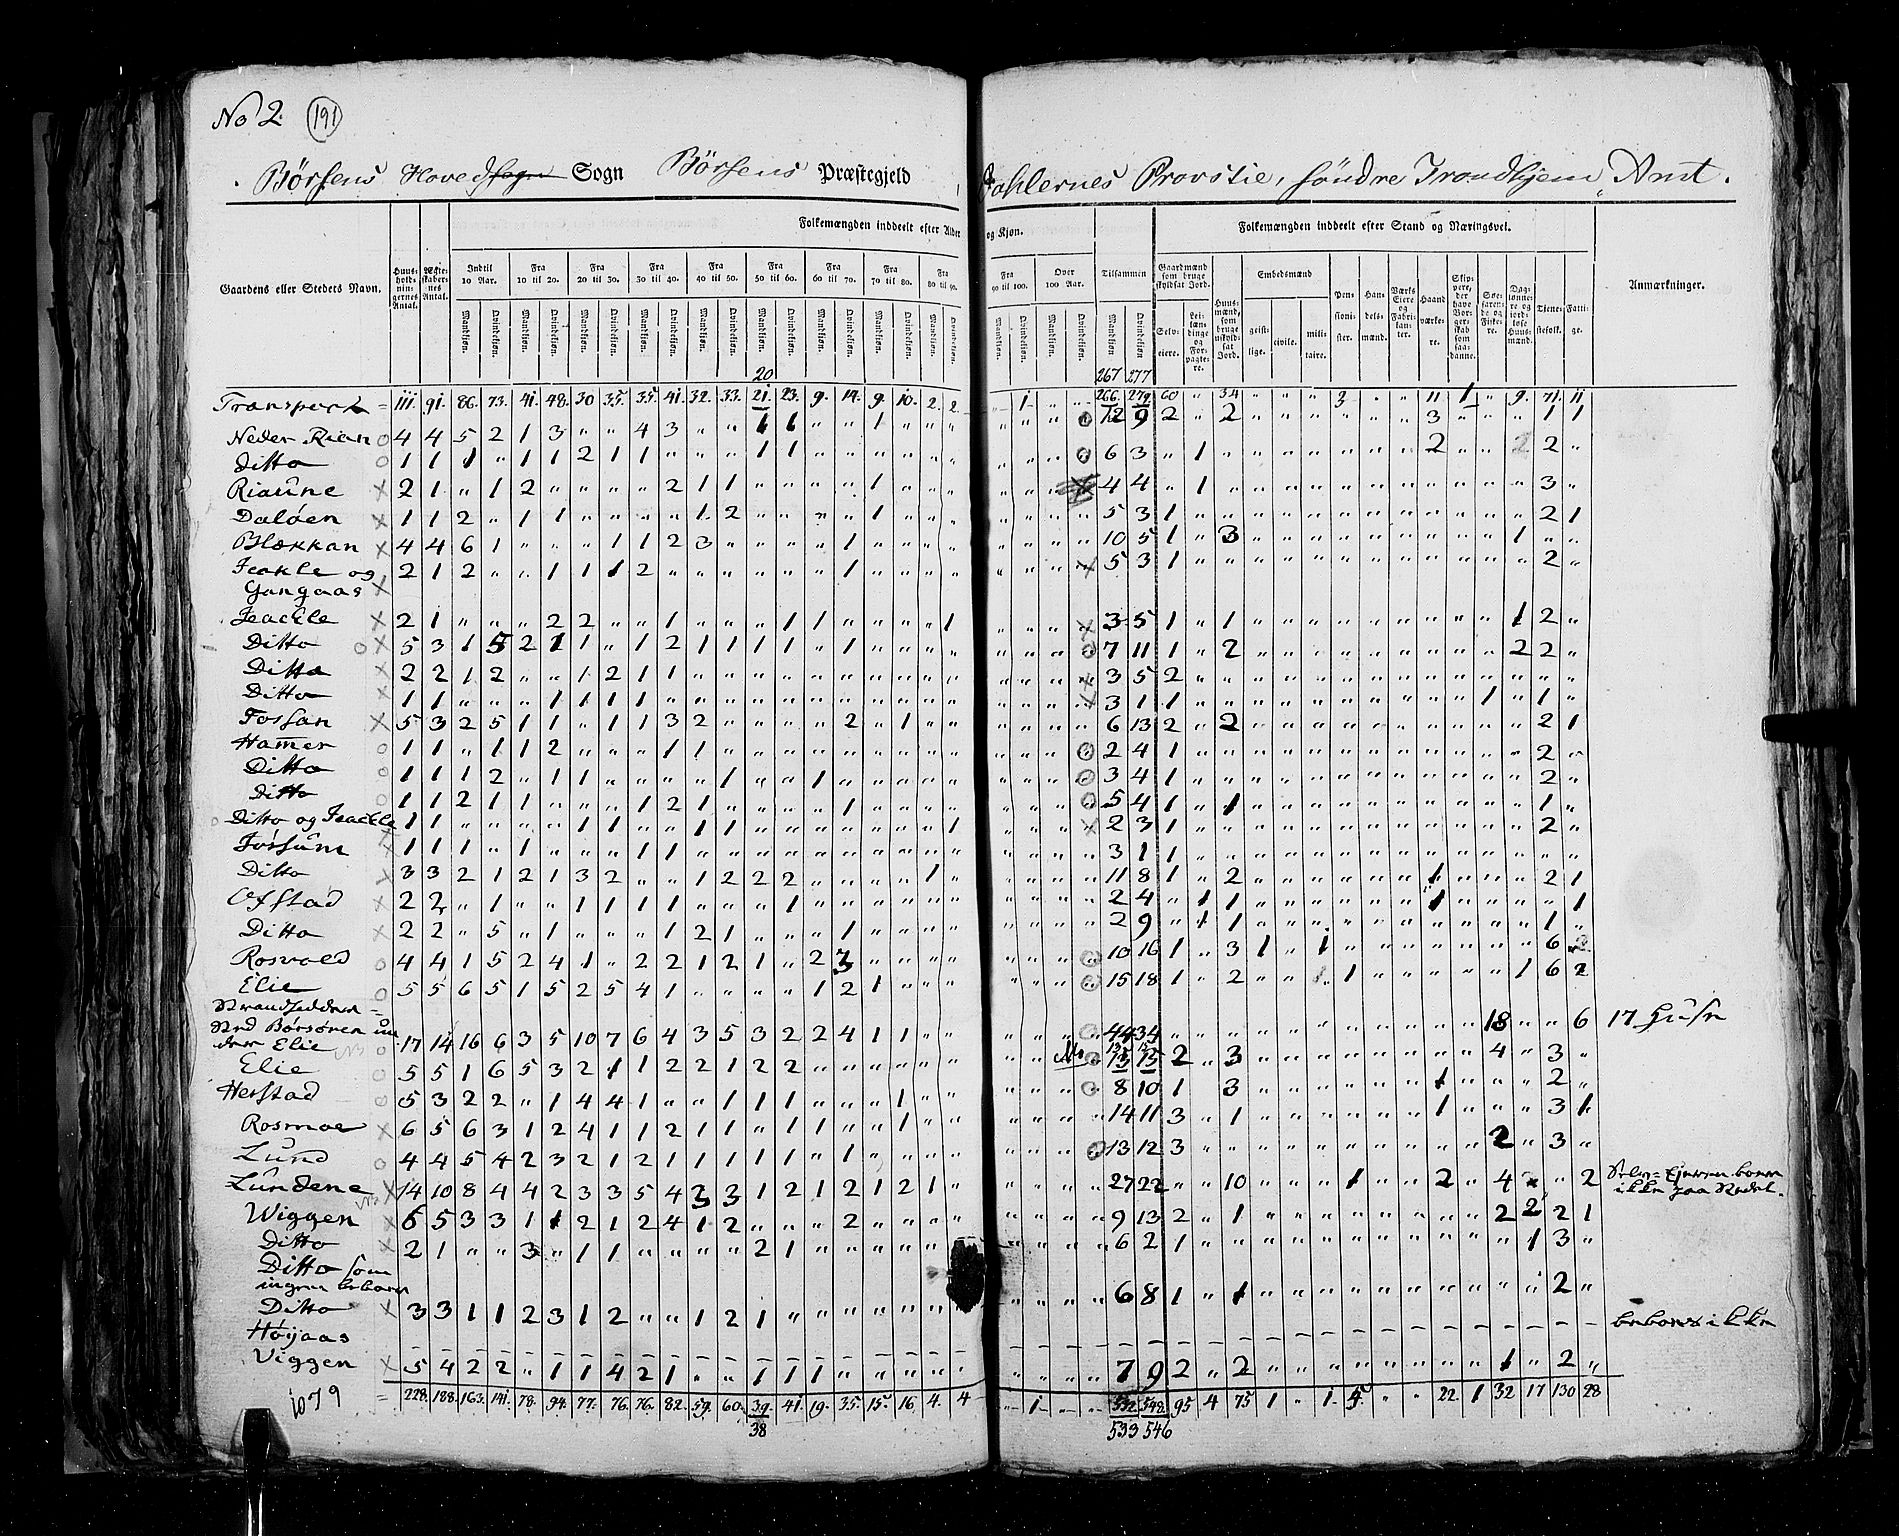 No 2. (191)
Börsens Hovedsogn Sogn Börsens Præstegjeld Dahlernes Provstie, söndre Trondhjem Amt.
Folkemængden inddeelt efter Alder og Kjøn. Folkemængden inddeelt efter Stand og Næringsvei.
Gaardens eller Steders Navn. Huus-holdnin-gernes Antal. Ægte-skaber-nes Antal. Indtil 10 Aar. Fra 10 til 20. Fra 20 til 30. Fra 30 til 40. Fra 40 til 50. Fra 50 til 60. Fra 60 til 70. Fra 70 til 80. Fra 80 til 90. Fra 90 til 100. Over 100 Aar. Tilsammen Gaardmænd som bruge skyldsat Jord. Huus-mænd, som bruge uskyld-sat Jord. Embedsmænd Pen-sioni-ster. Han-dels-mænd. Værks Eiere og Fabri-kan-ter. Haand-værke-re. Skip-pere, der have Bor-ger-skab som saa-danne. Søe-faren-de og Fiske-re. Dag-lønne-re og jord-løse Huus-mænd. Tjene-stefolk. Fatti-ge. Anmærkninger.
Mandkjøn. Qvindekjøn. Selv-eiere. Lei-læn-dinge og For-pagte-re. geist-lige. civile. mili-taire.
20 267 277
Transport = 111. 91. 86. 73. 41. 48. 30 35. 35. 41. 32. 33. 21. 23. 9. 14. 9. 10. 2. 2. " 1. " " 266. 279. 60 " 34 " " " 3 " " 11 1 " 9. 71. 11
Neder Rian o 4 4 5 2 1 3 " " 4 3 " " 1 1 " " 1 " " " 12 9 2 " 2 " " " " " " 3 " " " 1 1
Ditto o 1 1 1 " 1 1 2 1 1 " " " 1 1 " " " " " " 6 3 " 1 " " " " " " " 2 " " 2 2 "
Riaune x 2 1 " 1 2 " " " " 2 1 1 " " " " 1 " " " 4 4 " 1 " " " " " " " " " " " 3 "
Daløen x 1 1 2 " 1 1 " " " " 1 2 " " " " 1 " " " 5 3 1 " " " " " " " " " " " " 2 1
Blækkan x 4 4 6 1 " " " 1 1 2 3 " " " " 1 " " " " 10 5 1 " 3 " " " " " " " " " 1 " "
Jeakle og 2 1 2 " " 1 1 1 2 " " " " " " 1 " " " " 5 3 1 " " " " " " " " " " " " 2 "
Gangaas x
Jeackle x 2 1 " " " 2 2 " " 1 " " " 1 1 " " " " 1 3 5 1 " 1 " " " " " " " " " 1 2 "
Ditto o x 5 3 1 5 2 1 1 " 1 2 1 1 1 1 " 1 " " " " 7 11 1 " 2 " " " " " " " " " 2 2 "
Ditto x 2 2 1 2 " " 1 2 1 1 " " " " " " " " " " 3 5 2 " " " " " " " " " " " " " "
Ditto x 1 1 " " " 1 1 1 1 " " " " " " " " " " " 3 1 1 " " " " " " " " " " 1 " 1 "
Fossan x 5 3 2 5 1 1 " 1 1 3 2 " " " " 2 " 1 " " 6 13 2 " 2 " " " " " " " " " " 2 1
Hamer o 1 1 " 1 1 2 " " " 1 1 " " " " " " " " " 2 4 1 " " " " " " " " " " " " 2 "
Ditto o 1 1 1 2 " 1 1 " " " " 1 " " 1 " " " " " 3 4 1 " " " " " " " " " " " " 2 "
Ditto o 1 1 2 1 1 " " " 1 2 1 " " " " 1 " " " " 5 4 1 " 1 " " " " " " " " " " 1 "
Ditto og Jeackle x 1 1 " " " " 1 1 " " 1 1 " " " " " " " 1 2 3 1 " " " " " " " " " " " " 2 "
Forsum x 1 1 1 " 1 " " " 1 1 " " " " " " " " " " 3 1 1 " " " " " " " " " " " " " "
Ditto x 3 3 2 1 2 1 3 2 " " 1 2 2 2 " " " " 1 " 11 8 1 " 2 " " " " " " 1 " " " 2 1
Ofstad x 2 2 " 1 " " 1 1 1 1 " " " 1 " " " " " " 2 4 " 1 1 " " " " " " 1 " " " " 1
Ditto x 2 2 " 5 " 1 " " " 1 2 1 " " " 1 " " " " 2 9 " 1 1 " " " " " " " " " " 1 "
Rosvold o 4 4 1 5 2 4 1 " 2 2 1 2 1 " 2 3 " " " " 10 16 1 " 3 1 " 1 " " " " " " " 6 2
Elie o 5 5 6 5 1 5 2 5 4 1 " " " " 1 2 1 " " " 15 18 1 " 2 " " 1 1 " " " " " 1 6 2
Strandsiddere
ved Börsören un
der Elie o 17 14 16 6 3 5 10 7 6 4 3 5 3 2 2 4 1 1 " " 44 34 " " " " " " " " " " " 18 " " 6 17 Huse
Elie o 5 5 1 6 5 3 2 1 1 2 2 1 2 2 " " " " " " 13 15 2 " 3 " " " " " " " " 4 " 3 "
Herstad o 5 3 2 2 " 1 4 4 1 " " 1 1 1 " " " 1 " " 8 10 1 " 3 " " " " " " 1 " " " 2 "
Rosmoe x 6 5 6 3 1 2 4 1 1 2 1 1 " 1 1 " " 1 " " 14 11 3 " 1 " " " " " " 1 " " " 3 1
Lund o 4 4 5 4 2 3 2 1 2 1 1 1 1 1 " 1 " " " " 13 12 3 " " " " " " " " " " 2 " 3 "
Lundene x 14 10 8 4 4 2 3 3 5 4 3 3 1 2 1 2 1 2 1 " 27 22 " " 10 " " " 1 " " 2 " 4 " " 2 Selv-Ejeren boer
ikke paa Stedet.
Wiggen x 6 5 3 3 1 1 2 1 2 4 1 2 " " " 2 " " " " 9 13 2 " 1 " " " " " " " " 2 2 2 1
Ditto x 2 1 " " 3 " 1 1 " " " " 2 1 " " " " " " 6 2 1 " " " " " " " " " " " 1 3 "
Ditto som
ingen beboer
Ditto x 3 3 1 1 2 3 1 2 " " 1 2 1 " " " " " " " 6 8 1 " 1 " " " " " " " " " " 2 "
Höyaas beboes ikke
Viggen x 5 4 2 2 " 1 1 4 2 1 " " 1 1 1 " " " " " 7 9 2 " 2 " " " " " " " " 1 " 2 "
1079 = 228. 188. 163. 141. 78. 94. 77. 76. 76. 82. 59. 60. 39 41. 19. 35. 15. 16 4. 4 " 1 " " 532. 548. 95 4 75 1 " 1. 5. " " 22. 1 32 17 130 28
38 533 546